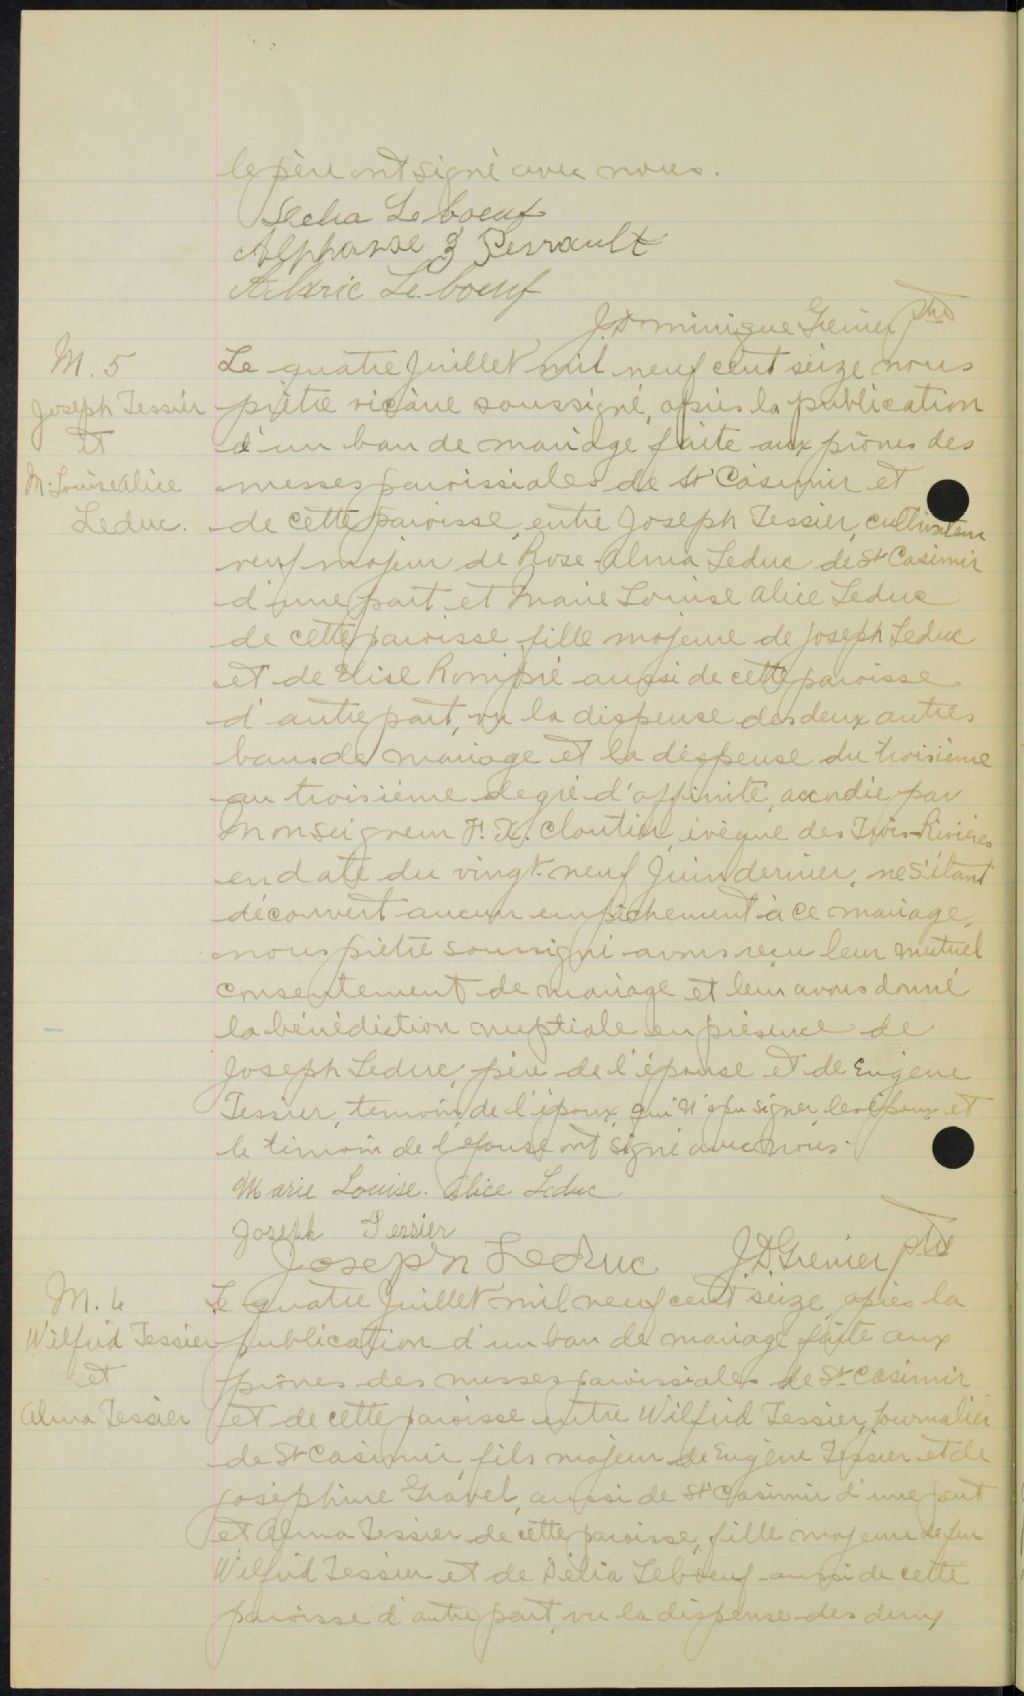 le père ont signé avec nous.
Delia Leboeuf
Alphonse Z Perrault
Alberic Leboeuf
J. Dominique Grenier ptre
M. 5
Joseph Tessier
et
M. Louise Alice
Leduc.
Le quatre Juillet mil neuf cent seize nous
prêtre vicaire soussigné, après la publication
d'un ban de mariage faite aux prônes des
messes paroissiales de St Casimir et
de cette paroisse, entre Joseph Tessier, cultivateur
veuf majeur de Rose-Alma Leduc de St Casimir
d'une part et Marie Louise Alice Leduc
de cette paroisse fille majeure de Joseph Leduc
et de Elise Rompré aussi de cette paroisse
d'autre part, vu la dispense des deux autres
bans de mariage et la dispense du troisième
au troisième degré d'affinité, accordée par
Monseigneur F. X. Cloutier, évêque des Trois-Rivières
en date du vingt-neuf Juin dernier, ne s'étant
découvert aucun empêchement à ce mariage,
nous prêtre soussigné avons reçu leur mutuel
consentement de mariage et leur avons donné
la bénédiction nuptiale en présence de
Joseph Leduc, père de l'épouse et de Eugène
Tessier, temoin de l'époux, qui n'a pu signer, les époux et
le témoin de l'épouse ont signé avec nous.
Marie Louise. Alice Leduc
Joseph Tessier
Joseph LeDuc J D Grenier ptre
M. 6
Wilfrid Tessier
et
Alma Tessier
Le quatre Juillet mil neuf cent seize, après la
publication d'un ban de mariage faite aux
prônes des messes paroissiales de St Casimir
et de cette paroisse entre Wilfrid Tessier, Journalier
de St Casimir, fils majeur de Eugène Tessier et de
Joséphine Gravel, aussi de St Casimir d'une part
et Alma Tessier de cette paroisse, fille majeure de feu
Wilfrid Tessier et de Délia Leboeuf aussi de cette
paroisse d'autre part, vu la dispense des deux